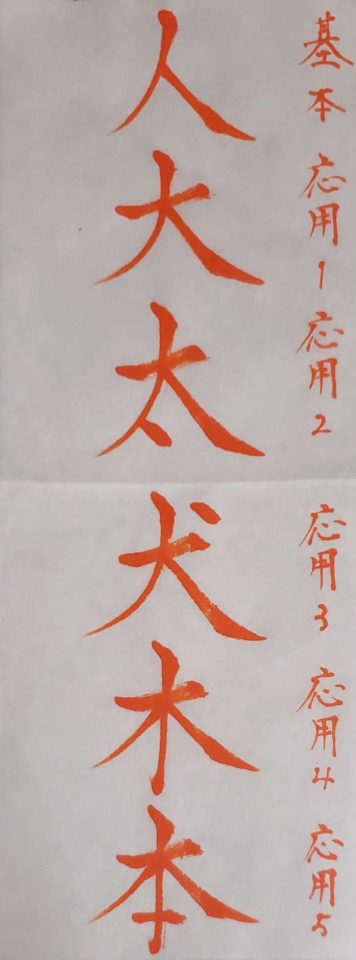 基本 応用1 応用2 応用3 応用4 応用5
人大太犬木本